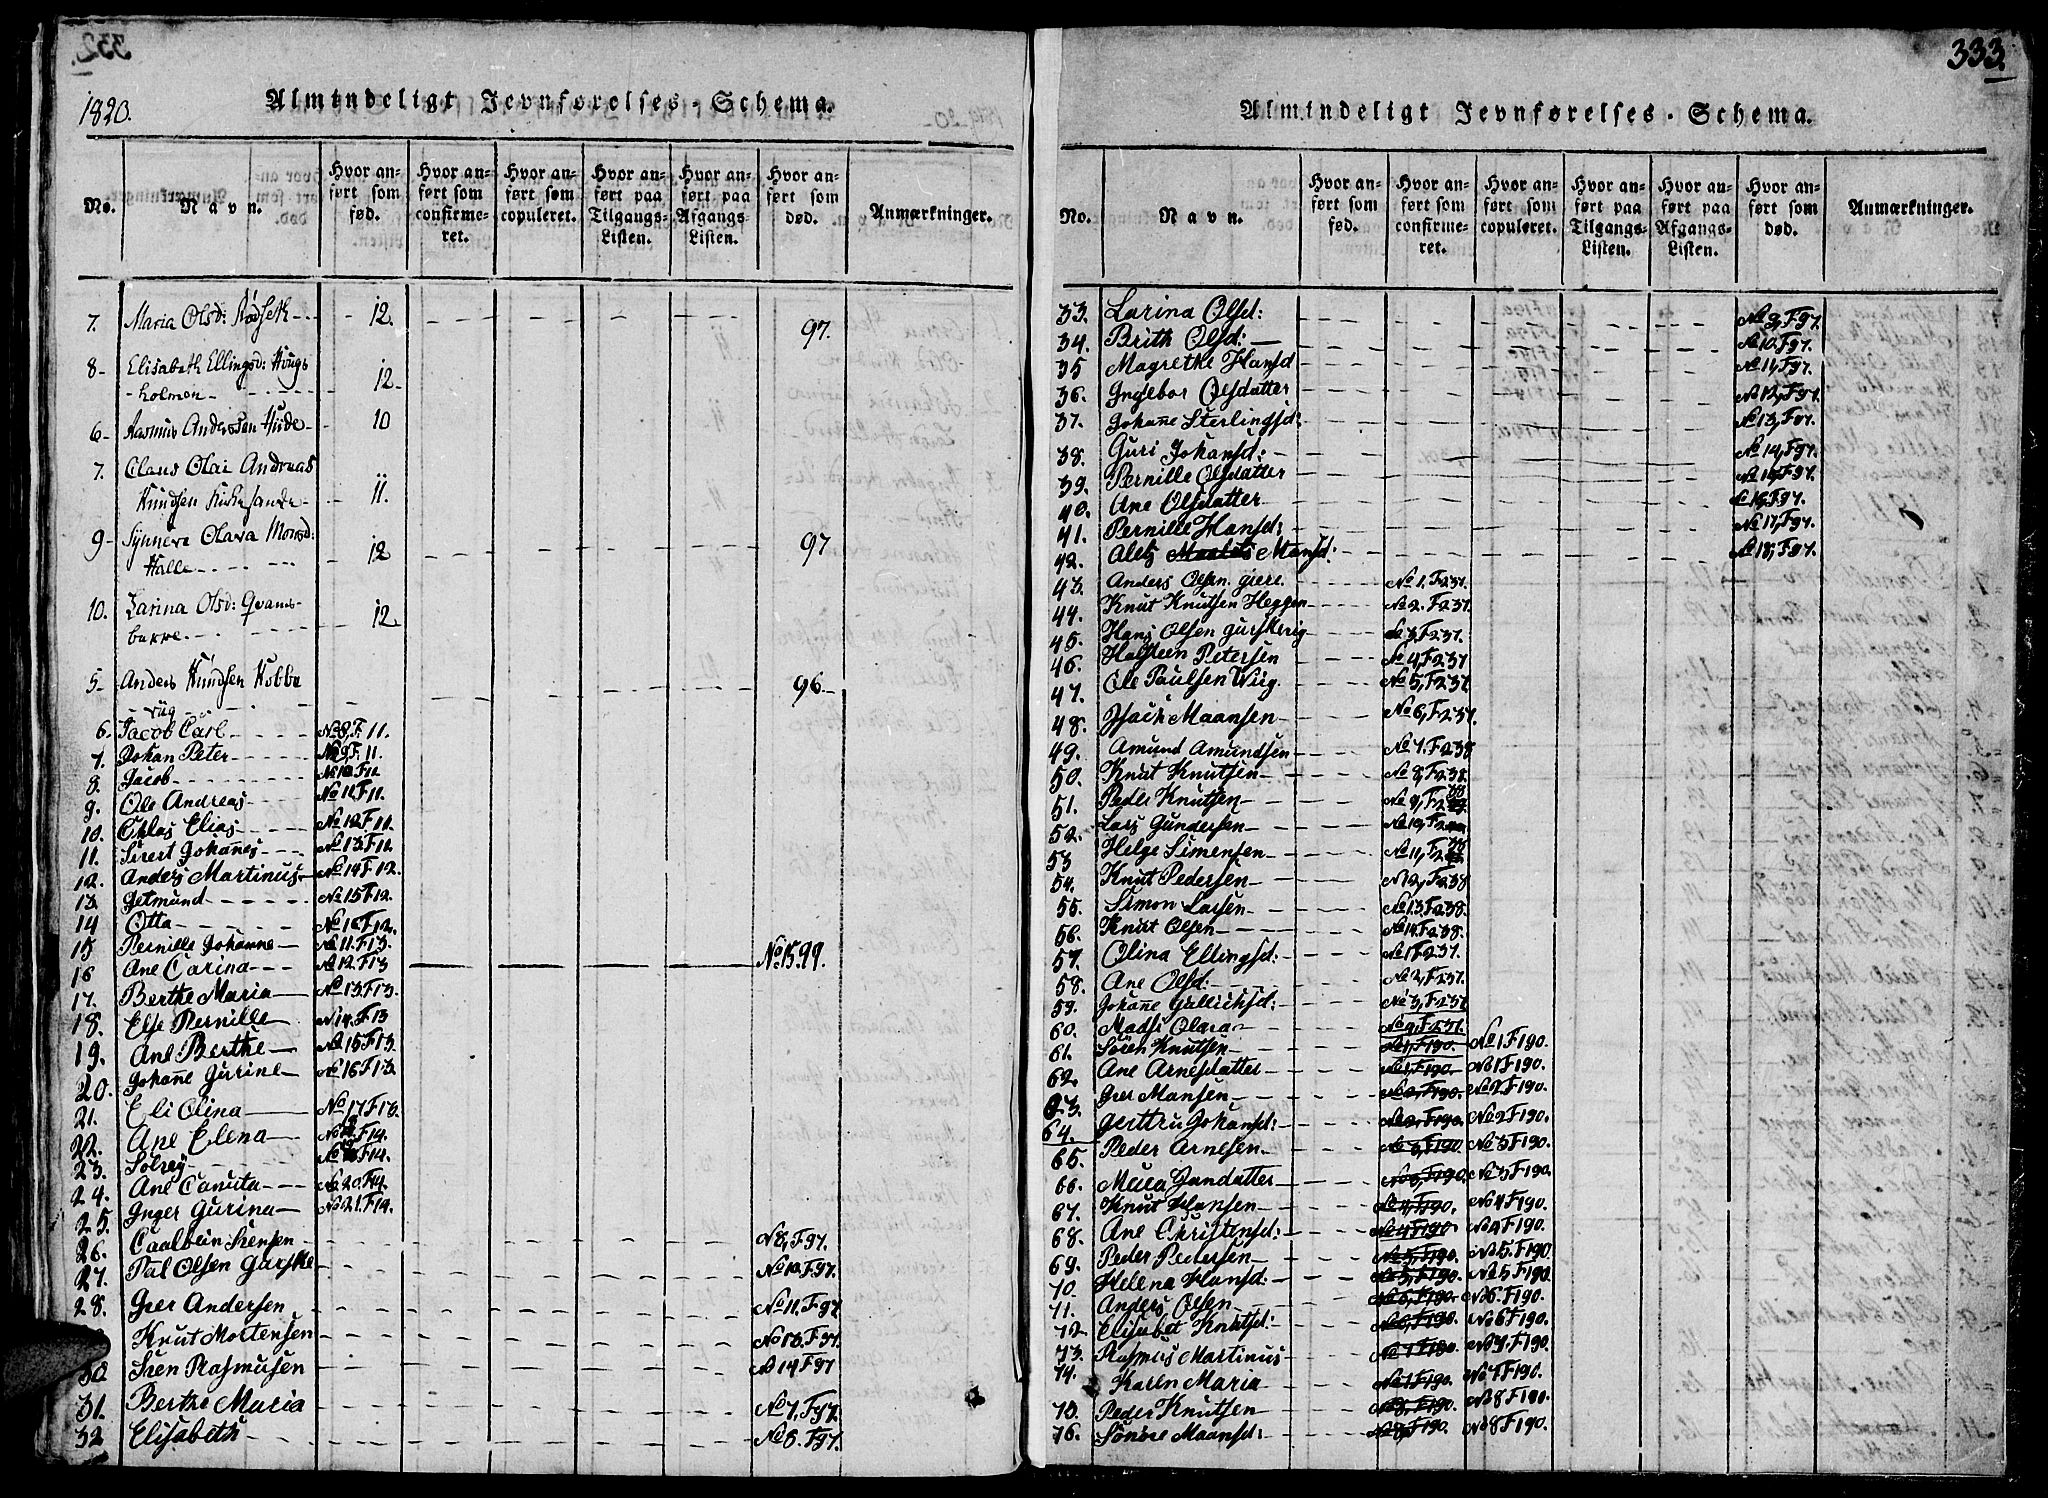 332.
1820.
Almindeligt Jevnførelses-Schema.
No. | Navn. | Hvor anført som fød. | Hvor anført som confirmeret. | Hvor anført som copuleret. | Hvor anført paa Tilgangs-Listen. | Hvor anført paa Afgangs-Listen. | Hvor anført som død. | Anmærkninger.
7. Maria Olsd: Rødseth - 12. 97.
8- Elisabeth Ellingsd: Haugs
holmen - 12-
6- Rasmus Anderssen Hiide - 10
7. Claus Olai Andreas
Knudsen Kirkesande - 11.
9- Synneva Olava Monsd:
Halle - 12 97
10. Zarina Olsd: Qvams-
bakke - 12.
5- Anders Knudsen Kobbe
vüg 96-
6. Jacob Carl No 8, F. 11.
7. Johan Peter No 9, F. 11.
8. Jacob No 10. F 11
9. Ole Andreas No 11. F 11.
10. Elias No 12 F 11.
11. Sivert Johañes No 13. F 12
12. Anders Martinus No 14 F 12.
13. Getmund No 15 F 12.
14 Otta No 16 F 12.
15 Pernille Johanne No 11. F 13.
16 Ane Carina No 12 F 13 No 15 99.
17. Berthe Maria No 13. F 13.
18. Else Pernille No 14. F 13
19. Ane Berthe No 15 F 13.
20. Johañe Gurine No 16 F 13.
21. Eli Olina No 17 F 13.
22. Ane Elena No 18, F 14.
23. Solvey No 19 F 14.
24. Ane Canuta No 20. F 14.
25. Inger Gurina No 21. F 14.
26. Caalbein Ivensen N 8, F 97.
27. Pål Olsen Gurske No 10. F 97.
28. Gier Andersen No 11. F 97
Knut Mortensen No 13. F 97.
30 Iven Rasmusen No 14 F 97
31. Berthe Maria No 7, F 97.
32 Elisabeth No 8. F 97.
333.
Almindeligt Jevnførelses-Schema.
No. | Navn. | Hvor anført som fød. | Hvor anført som confirmeret. | Hvor anført som copuleret. | Hvor anført paa Tilgangs-Listen. | Hvor anført paa Afgangs-Listen. | Hvor anført som død. | Anmærkninger.
33. Larina Olsd: No 9, F 97.
34. Brith Olsd: No 10. F 97.
35 Magrethe Hansd No 11, F 97.
36. Ingebor Olsdatter No 12, F 97.
37. Johañe Sterlingsd: No 13, F 97.
38. Guri Johansd: No 14, F 97.
39. Pernille Olsdatter No 15, F 97.
40. Ane Olsdatter No 16, F 97.
41. Pernille Hansd: No 17, F 97.
42. Alets Mansd: No 18, F 97.
43. Anders Olsen giere No 1. F 237.
44. Knut Knutsen Heggen No 2. F 237.
45. Hans Olsen gurskevig No 3, F 237.
46. Halsteen Petersen No 4, F 237
47. Ole Paulsen Wiig No 5, F 237.
48. Isach Maansen No 6, F 237.
49. Amund Amundsen No 7. F 238
50. Knut Knutsen No 8, F 238.
51. Peder Knutsen No 9, F 238
52. Lars Gundersen No 10, F 2
53 Helge Simensen No 11, F 238
54. Knut Pedersen N 12, F 238
55. Simon Larsen No 13. F 238.
56. Knut Olsen No 14. F 238.
57. Olina Ellingsd: No 1 F 237.
58. Ane Olsd: No 2, F 237.
59. Johañe Gullichsd: No 3, F 237
60. Madsi Olava No 4, F 237.
61. Søren Knutsen No 1, F 190. No 1 F 190.
62. Ane Arnesdatter No 1, F 190. No 1 F 190.
63. Gier Mansen No 2, F 190. No 2 F 190.
64. Gerttru Johansd: No 2, F 190. No 2 F 190.
65. Peder Arnesen No 3, F 190 No 3 F 190.
66. Maria Gundatter No 3, F 190. No 3 F 190.
67. Knut Hansen No 4, F 190. No 4 F 190.
68. Ane Christensd: No 4 F 190 No 4 F 190.
69. Peder Pedersen No 5, F 190. No 5. F 190.
70. Helena Hansd: No 5, F 190. No 5 F 190.
71. Anders Olsen No 6, F 190. No 6. F 190.
72 Elisabet Knutsd: No 6, F 190. No 6 F 190.
73. Rasmus Martinus No 7 F 190. No 7. F 190.
74. Karen Maria No 7 F 190. No 7 F 190.
75. Peder Knutsen No 8, F 190. No 8 F 190.
76. Sønove Maansd: No 8, F 190. No 8 F 190.